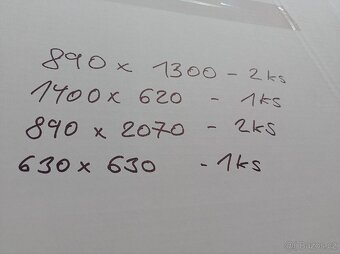 890 x 1300 - 2ks
1400 x 620 - 1ks
890 x 2070 - 2ks
630 x 630 - 1ks